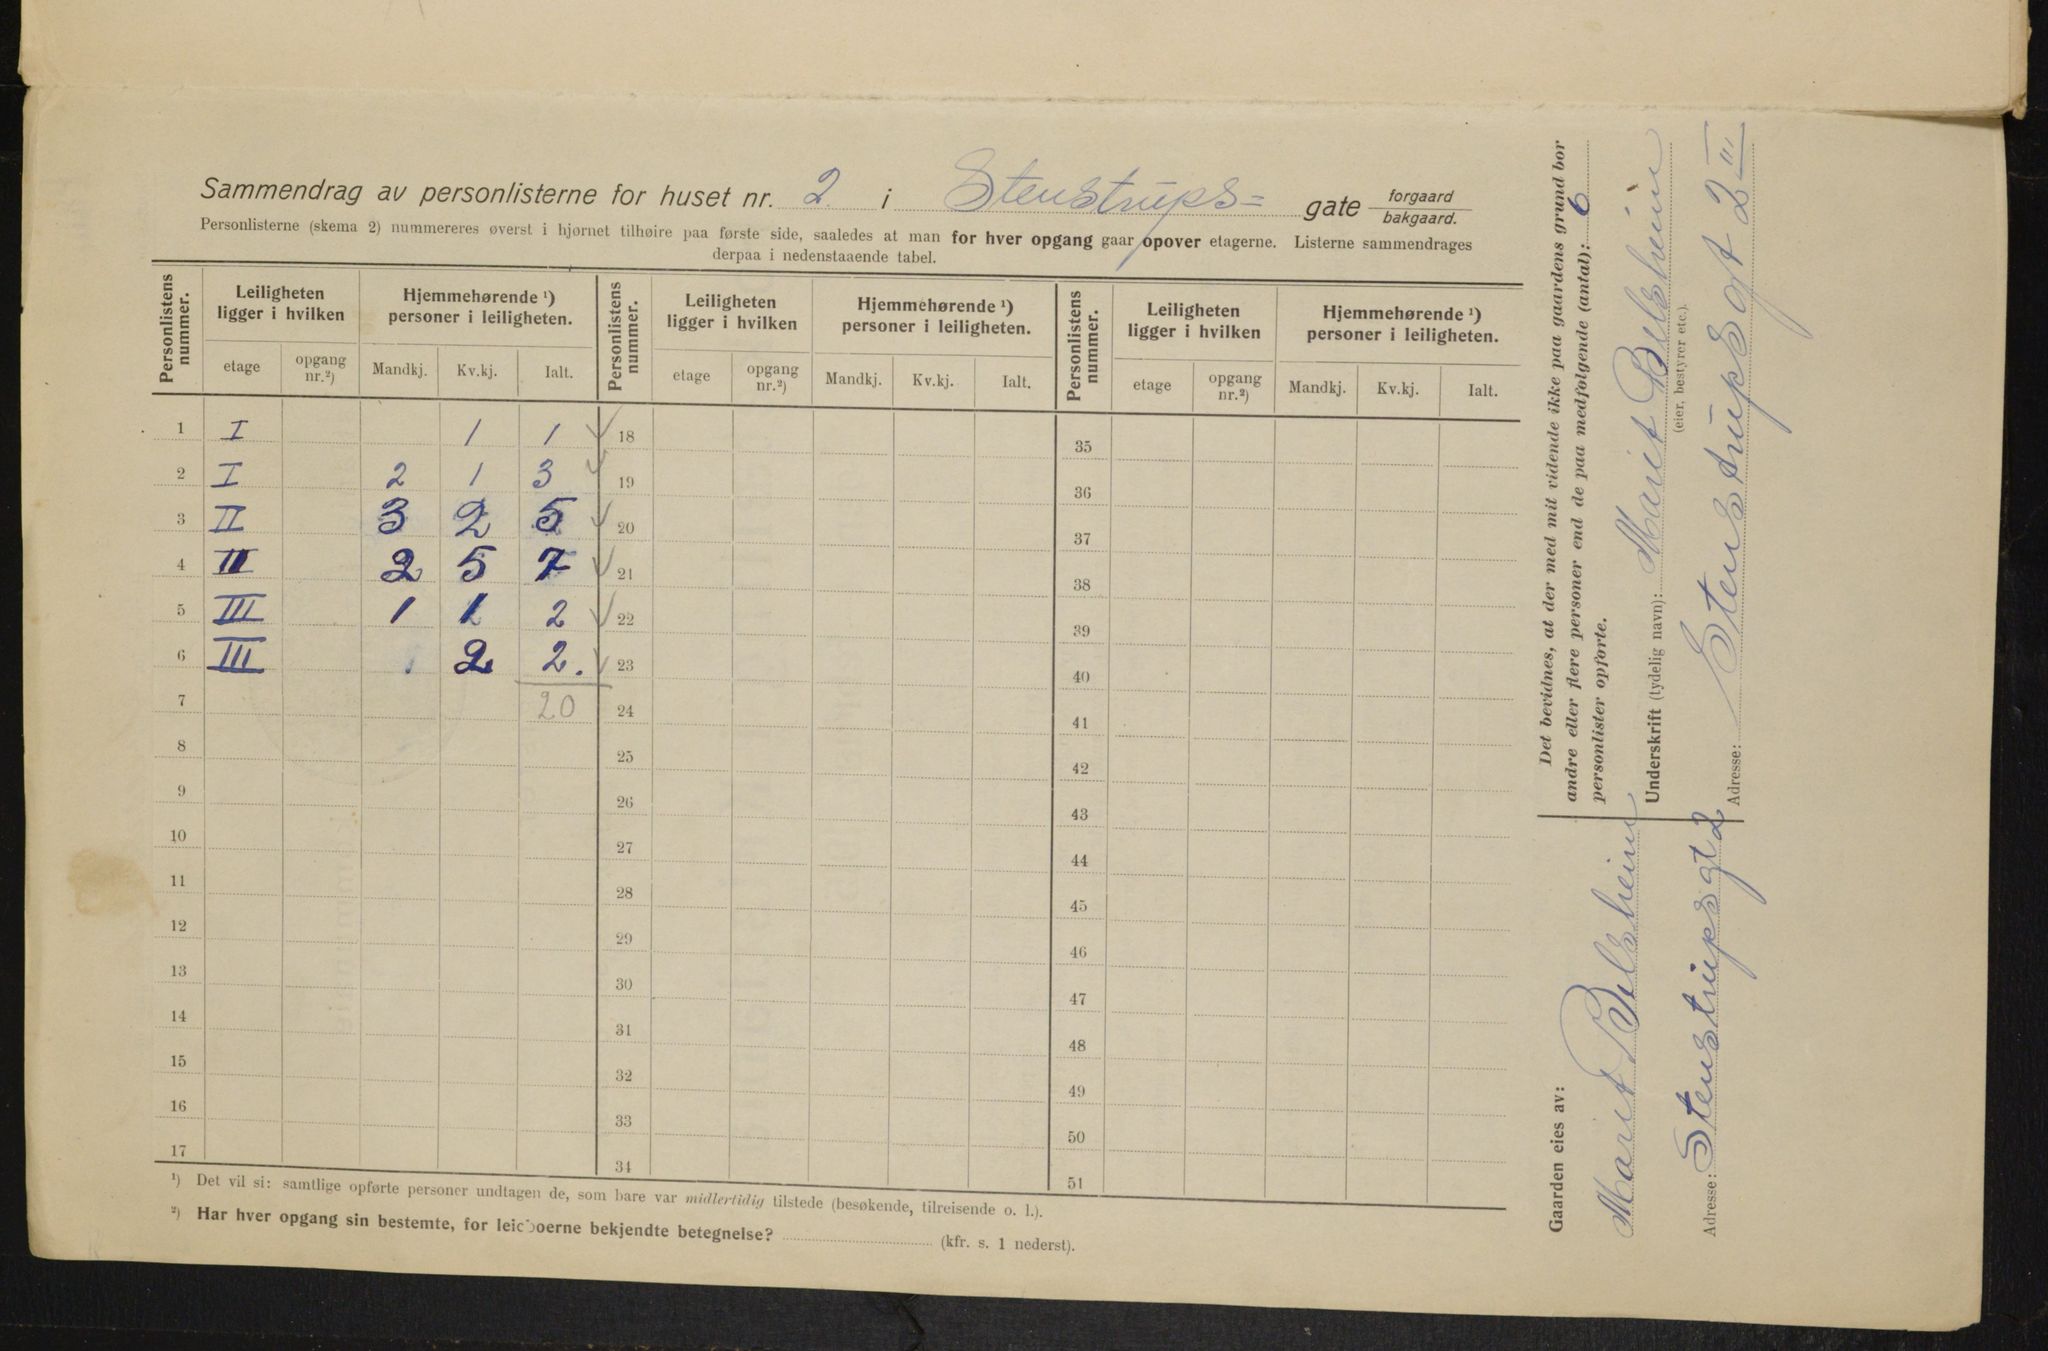 Sammendrag av personlisterne for huset nr. 2 i Stenstrups= gate forgaard / bakgaard.
Personlisterne (skema 2) nummereres øverst i hjørnet tilhøire paa første side, saaledes at man for hver opgang gaar opover etagerne. Listerne sammendrages
derpaa i nedenstaaende tabel.
Personlistens nummer. Leiligheten ligger i hvilken Hjemmehørende ¹) personer i leiligheten. Personlistens nummer. Leiligheten ligger i hvilken Hjemmehørende ¹) personer i leiligheten. Personlistens nummer. Leiligheten ligger i hvilken Hjemmehørende ¹) personer i leiligheten.
etage opgang nr.²) Mandkj. Kv.kj. Ialt. etage opgang nr.²) Mandkj. Kv.kj. Ialt. etage opgang nr.²) Mandkj. Kv.kj. Ialt.
1 I 1 1 18 35
2 I 2 1 3 19 36
3 II 3 2 5 20 37
4 II 2 5 7 21 38
5 III 1 1 2 22 39
6 III 2 2. 23 40
7 20 24 41
8 25 42
9 26 43
10 27 44
11 28 45
12 29 46
13 30 47
14 31 48
15 32 49
16 33 50
17 34 51
¹) Det vil si: samtlige opførte personer undtagen de, som bare var midlertidig tilstede (besøkende, tilreisende o. l.).
²) Har hver opgang sin bestemte, for leieboerne bekjendte betegnelse? (kfr. s. 1 nederst).
Det bevidnes, at der med mit vidende ikke paa gaardens grund bor
andre eller flere personer end de paa medfølgende (antal): 6
personlister opførte.
Underskrift (tydelig navn): Marit Belsheim
(eier, bestyrer etc.).
Adresse: Stenstrupsgt 2 III
Gaarden eies av:
Marit Belsheim
Adresse: Stenstrupsgt 2